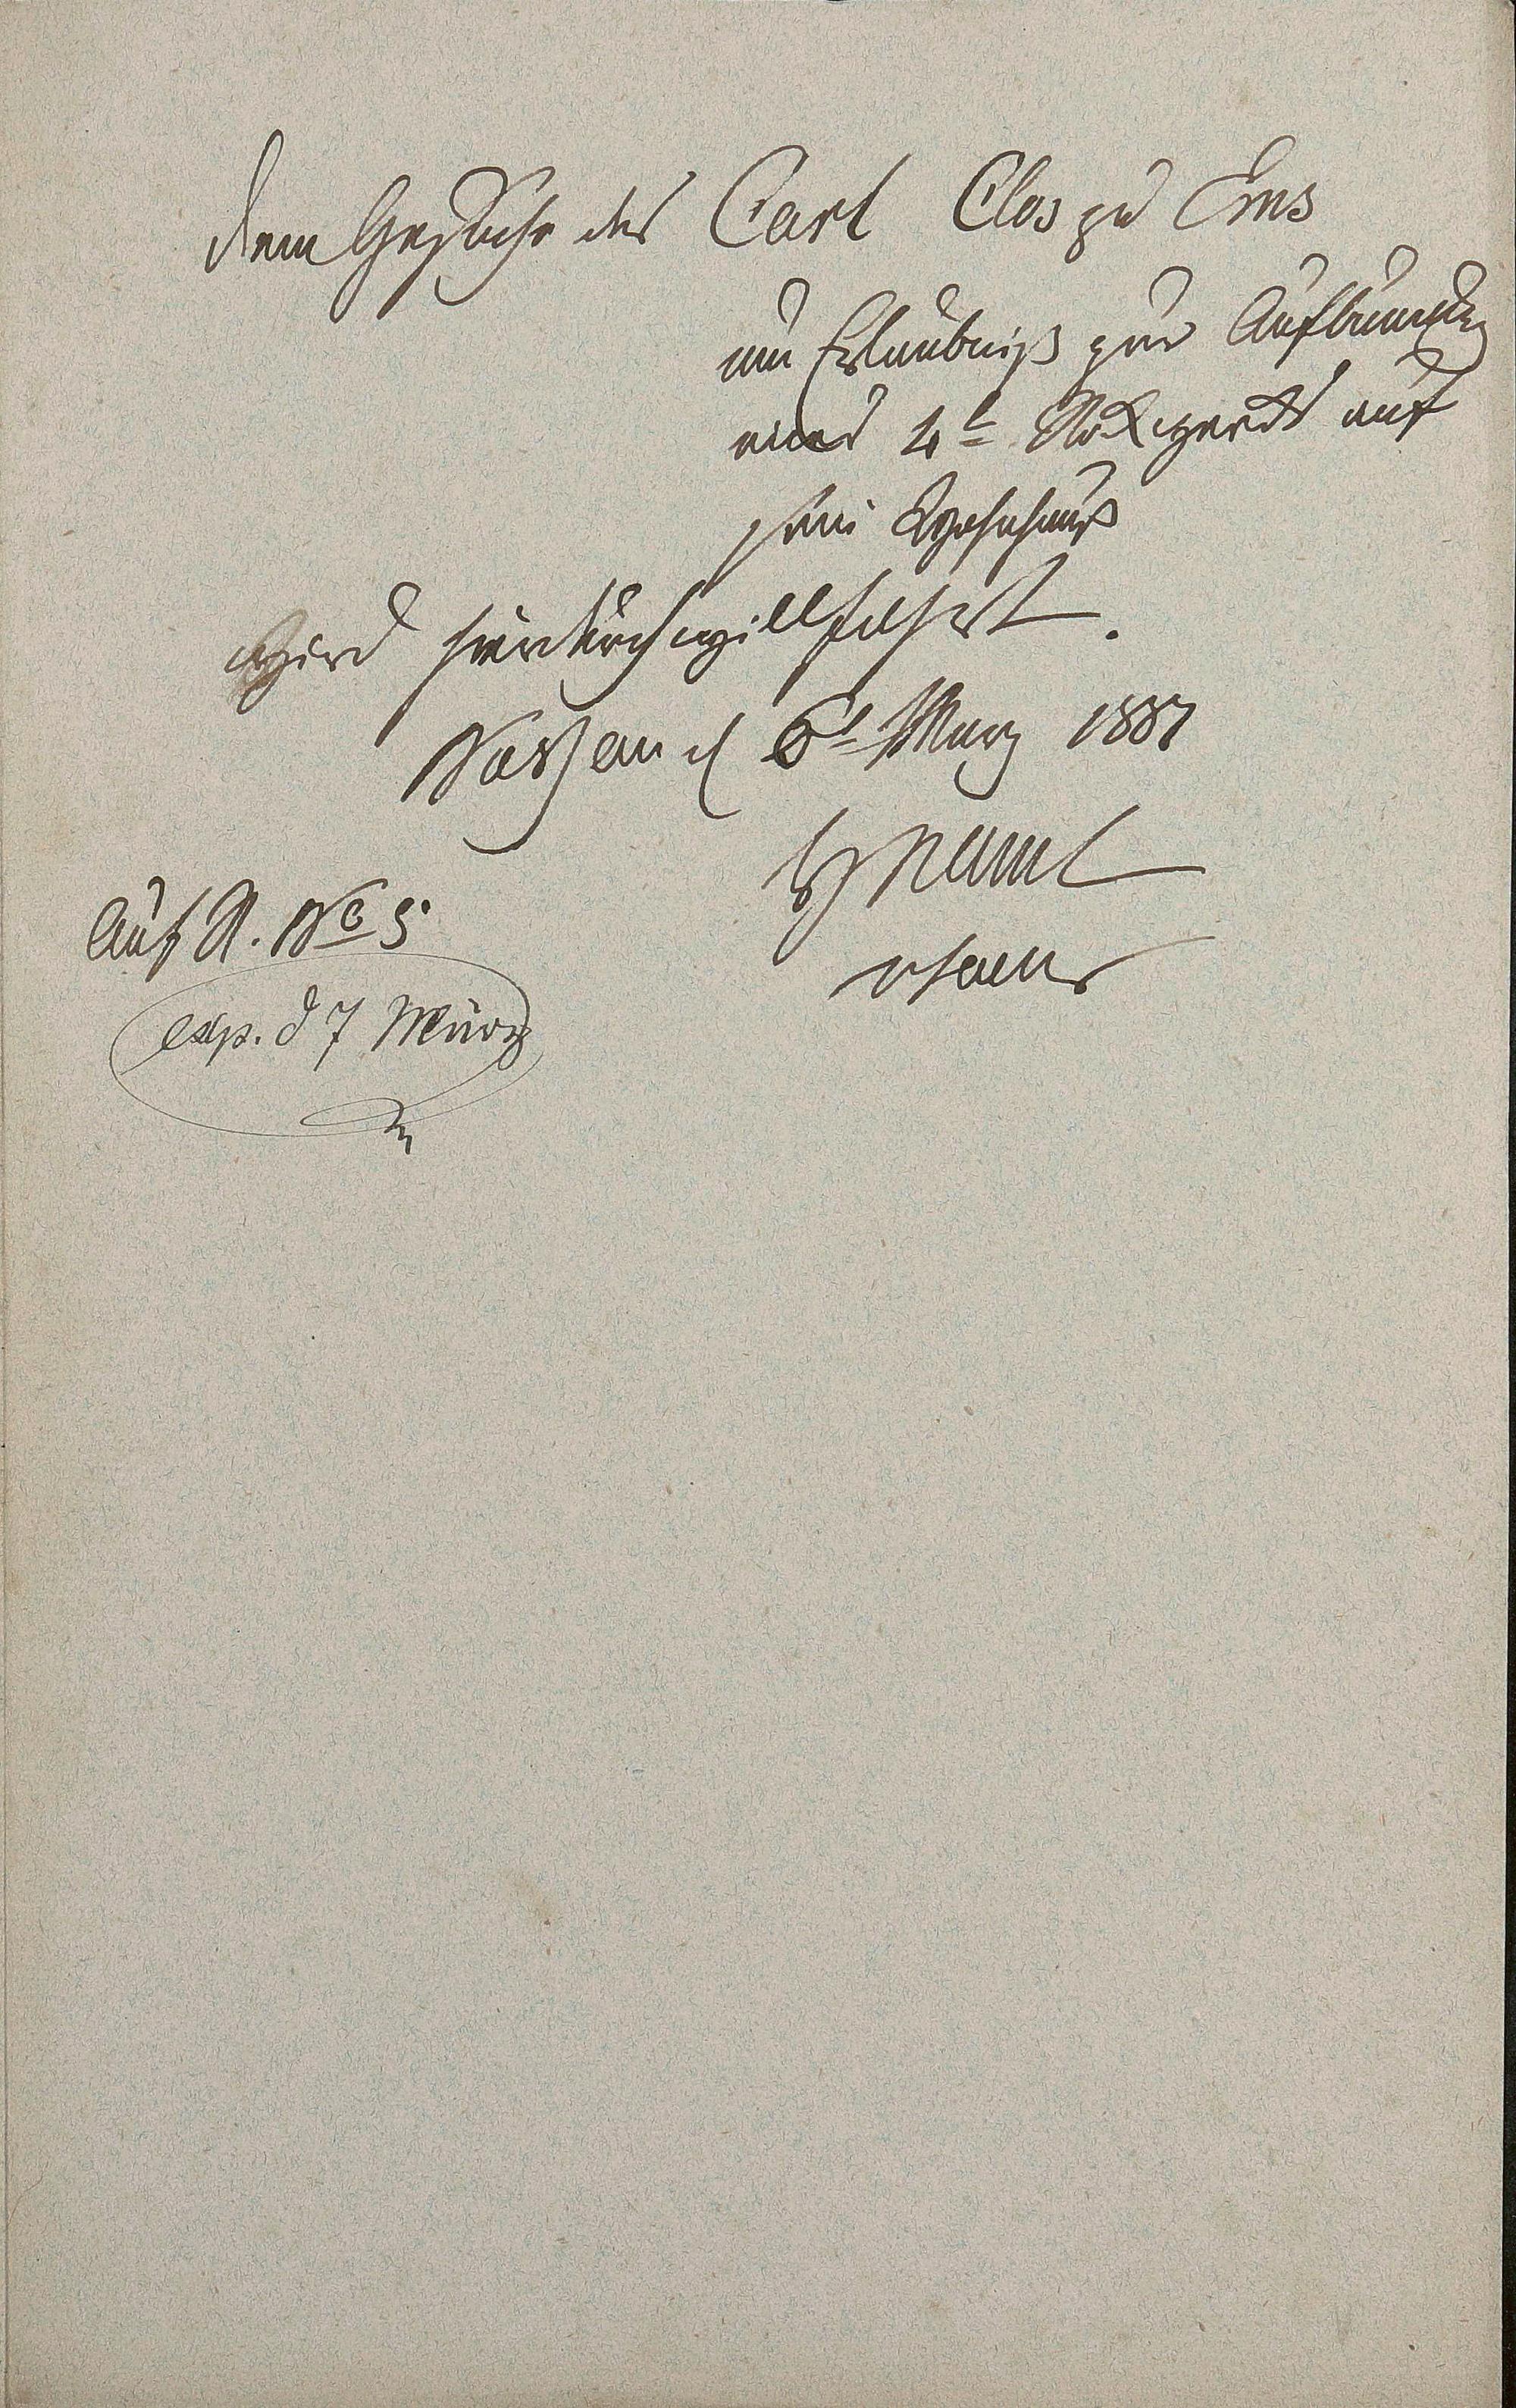 Dem Gesuche des Carl Clos zu Ems
um Erlaubniß zur Aufbauung
eines 4t Stockwerks auf
sein Wohnhaus
wird hierdurch willfahrt.
Nassau d 6t März
Hz Namt
Auf A. No 5
exp. d 7 März